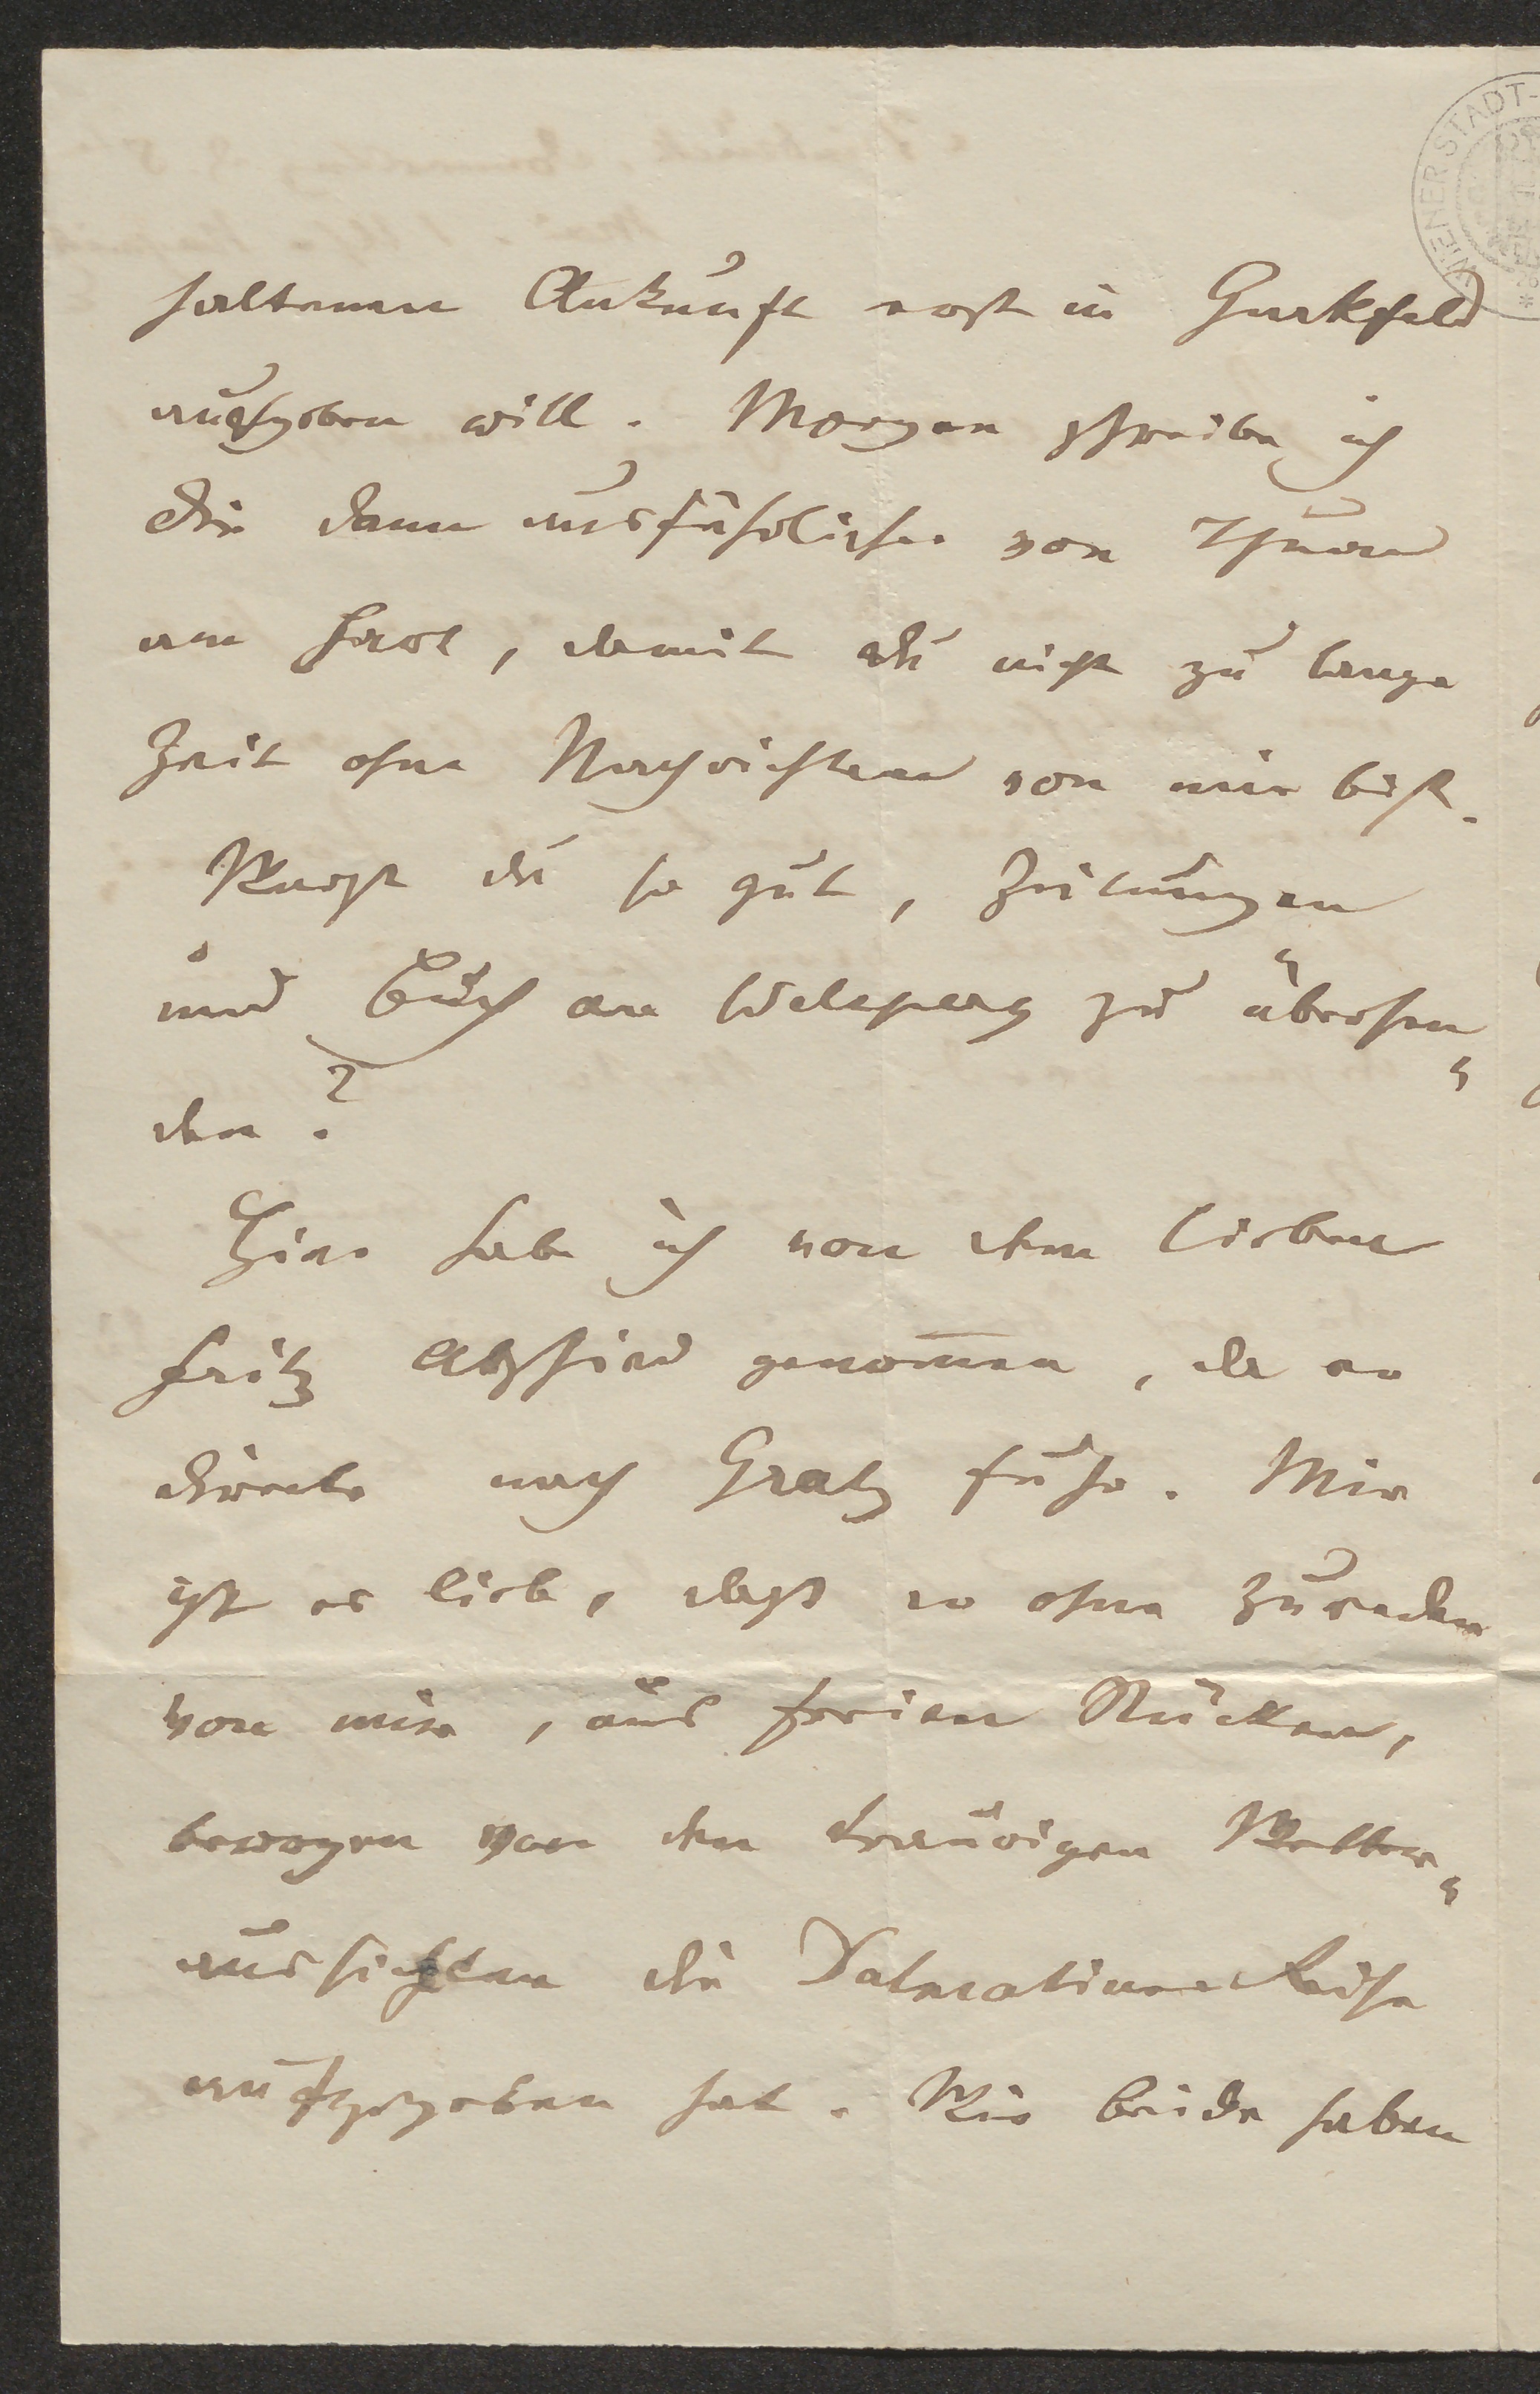 WIENER STADT-
haltenen Ankunft erst in Gurkfeld
aufgeben will. Morgen schreibe ich
Dir dann ausführlicher von Thurn
am Hart, damit du nicht zu lange
Zeit ohne Nachrichten von mir bist.
Warst du so gut, Zeitungen
und Buch an Welsperg zu übersen„
den?
Hier habe ich von dem lieben
Fritz Abschied genom̅en, da er
directe nach Gratz fuhr. Mir
ist es lieb, daß er ohne Zureden
von mir, aus freien Stücken,
bewogen von den traurigen Wetter„
aussichten die Dalmatiner Reise
aufgegeben hat. Wir beide haben